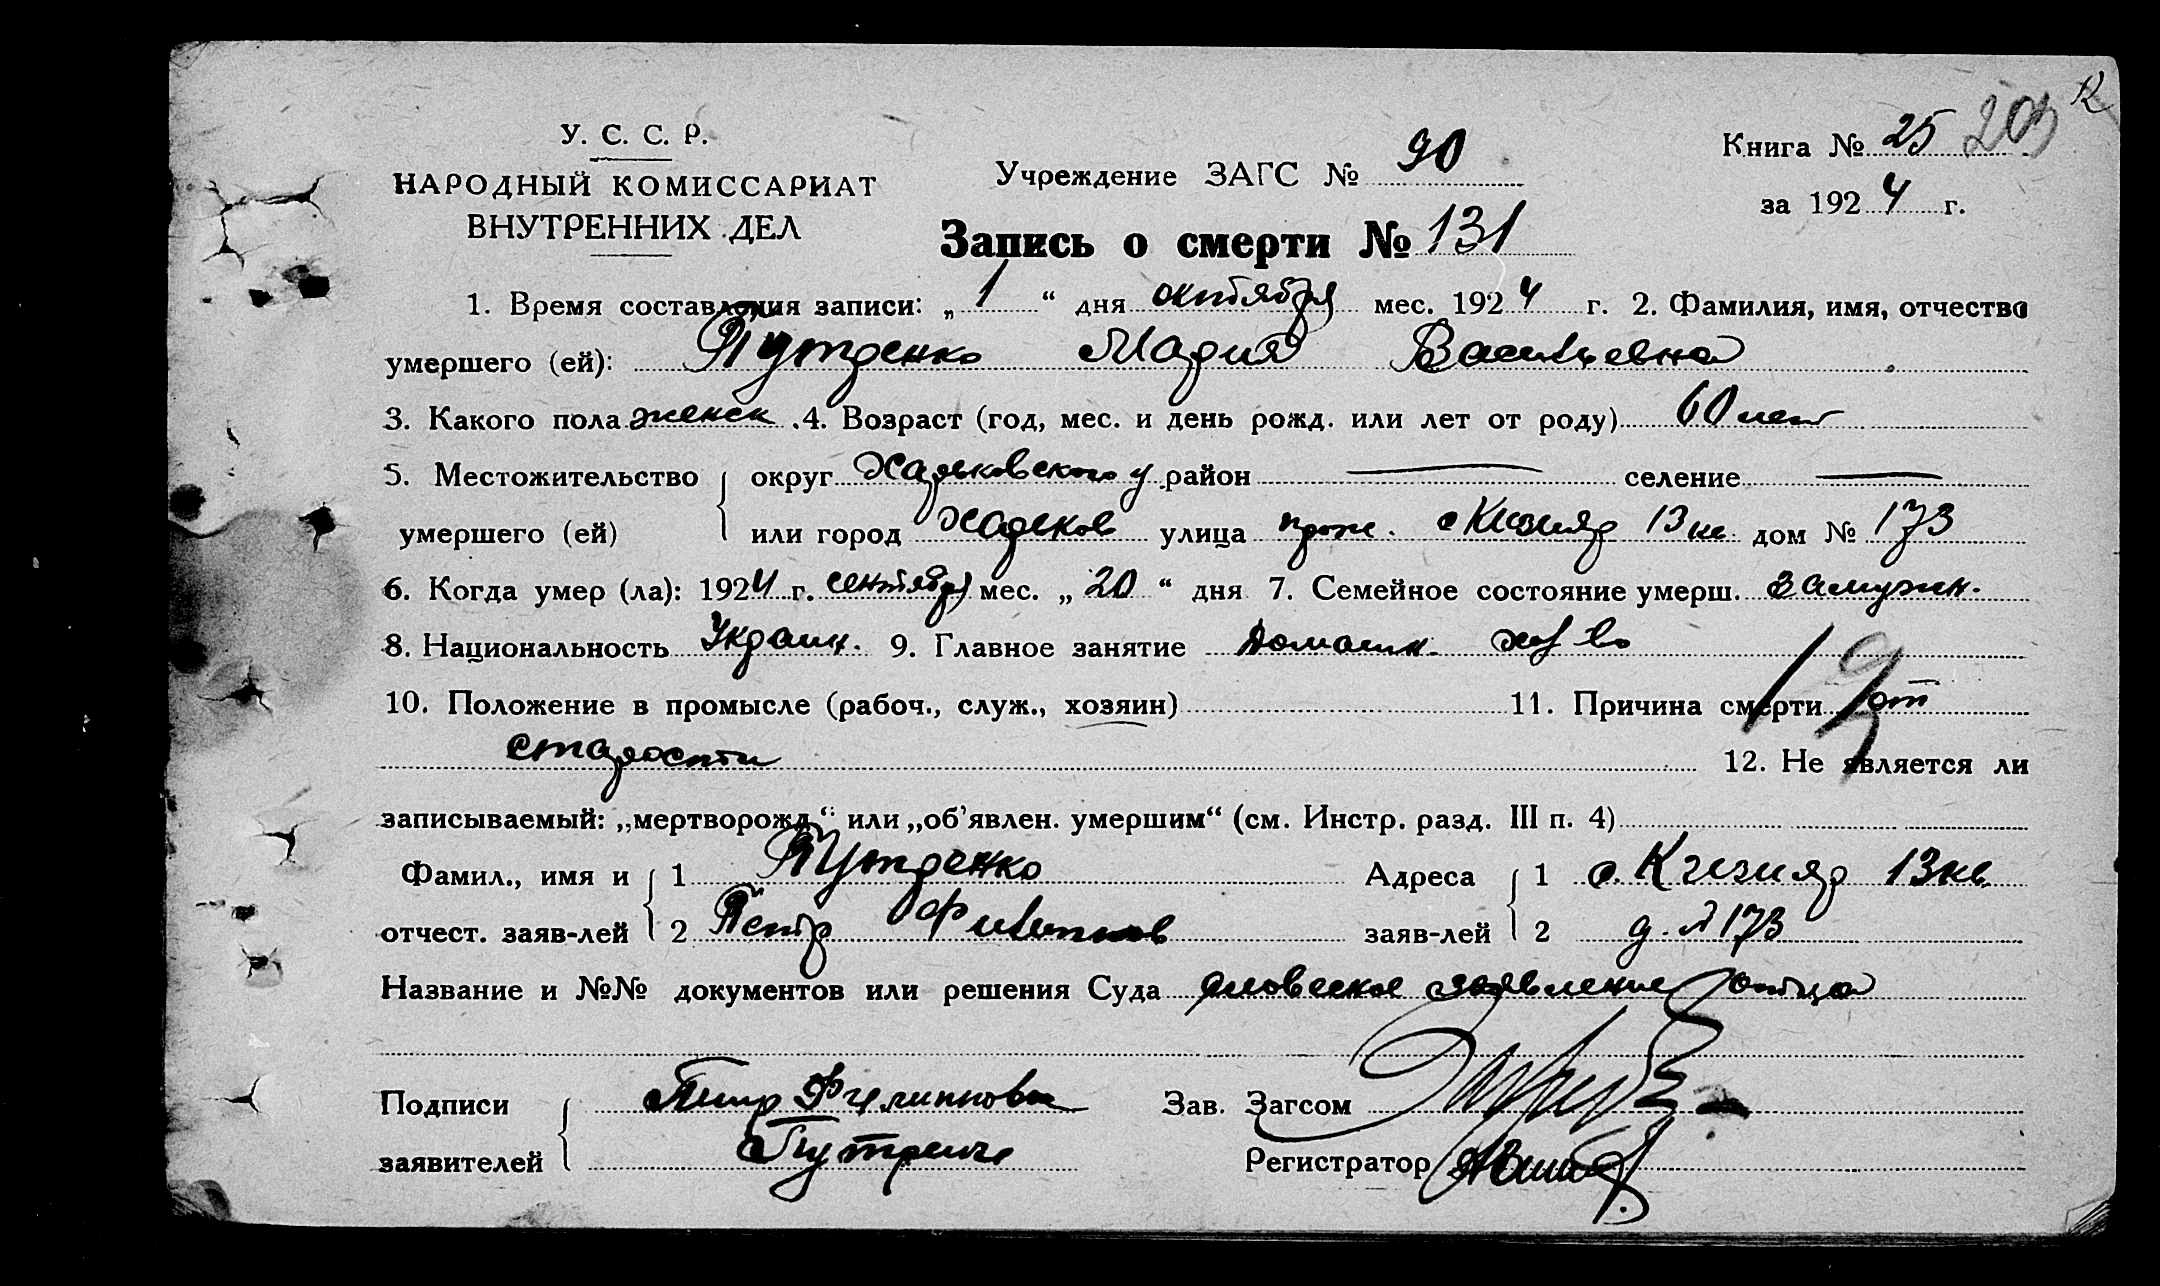 У. С. С. Р.
НАРОДНЫЙ КОМИССАРИАТ
ВНУТРЕННИХ ДЕЛ
Учреждение ЗАГС № 90
Книга № 25 203
за 1924 г.
Запись о смерти № 131
1. Время составления записи: „ 1 “ дня октября мес. 1924 г. 2. Фамилия, имя, отчество
умершего (ей): Путренко Мария Васильевна
3. Какого пола женск .4. Возраст (год, мес. и день рожд. или лет от роду) 60 лет
5. Местожительство округ Харьковского у район — селение —
умершего (ей) или город Харьков улица с Кизияр 13 кв. дом № 173
6. Когда умер (ла): 1924 г. сентября мес. „ 20 “ дня 7. Семейное состояние умерш. замужн.
8. Национальность Украин. 9. Главное занятие домашн. хоз во
10. Положение в промысле (рабоч., служ., хозяин) 11. Причина смерти от
старости 12. Не является ли
записываемый: „мертворожд.“ или „об’явлен. умершим“ (см. Инстр. разд. III п. 4)
Фамил., имя и 1 Путренко Адреса 1 с. Кизияр 13 кв.
отчест. заяв-лей 2 Петр Филиппов заяв-лей 2 д. № 173
Название и №№ документов или решения Суда словесное заявление отца
Подписи Петр Филиппова Зав. Загсом
заявителей Путренко Регистратор